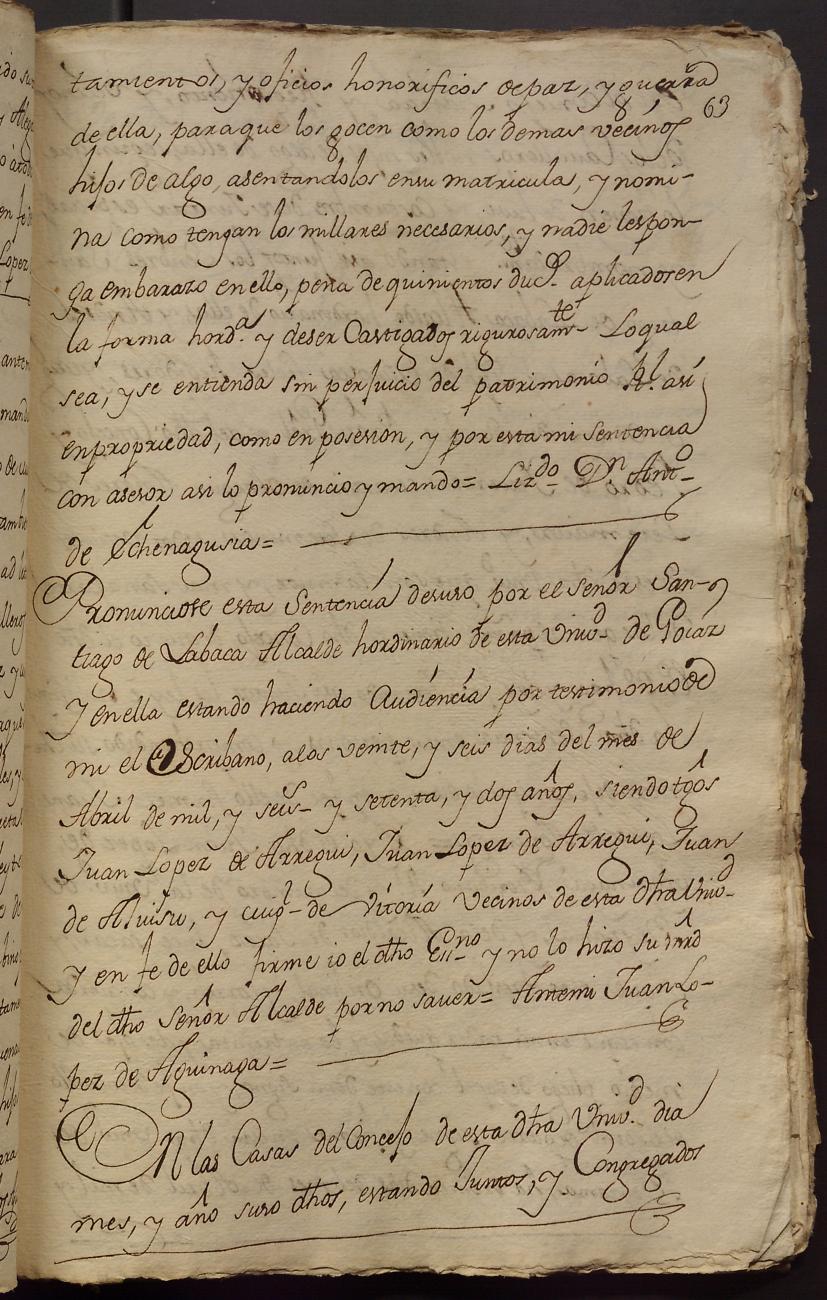 tamientos, y oficios honorificos de paz, y guerra
63
de ella, para que los gocen como los demas vecinos
hijos de algo, asentandolos en su matricula, y nomi-
na como tengan los millares necesarios, y nadie les pon-
ga embarazo en ello, pena de quinientos duc.s aplicados en
la forma hord.a y de ser Castigados rigurosam.te Lo qual
sea, y se entienda sin perjuicio del patrimonio Rl. asi
en propriedad, como en posesion, y por esta mi Sentencia
con asesor asi lo pronuncio y mando= Liz.do D.n Ant.o
de Echenagusia=
Pronunciose esta Sentencia desuso por el señor San-
tiago de Labaca Alcalde hordinario de esta Univ.d de Goiaz
y en ella estando haciendo Audiencia por testimonio de
mi el Escribano, a los veinte, y seis dias del mes de
Abril de mil, y seis.s y setenta, y dos años, siendo tgos
Juan Lopez de Arregui, Juan Lopez de Arregui, Juan
de Aluisu, y de Vitoria Vecinos de esta dha Univ.d
y en fe de ello firme io el dho Ess.no y no lo hizo su mrd
del dho Señor Alcalde por no saver= Antemi Juan Lo-
pez de Aguinaga=
En las Casas del Concejo de esta dha Univ.d dia
mes, y año suso dhos, estando Juntos, y Congregados